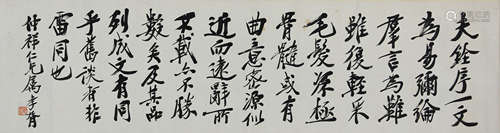 夫銓序一文
為易彌綸
羣言為難
雖復輕采
毛髮深極
骨髓或有
曲意密源似
近而遠辭所
不載亦不勝
數矣及其品
列成文有同
乎舊談者非
雷同也
祥仁兄屬